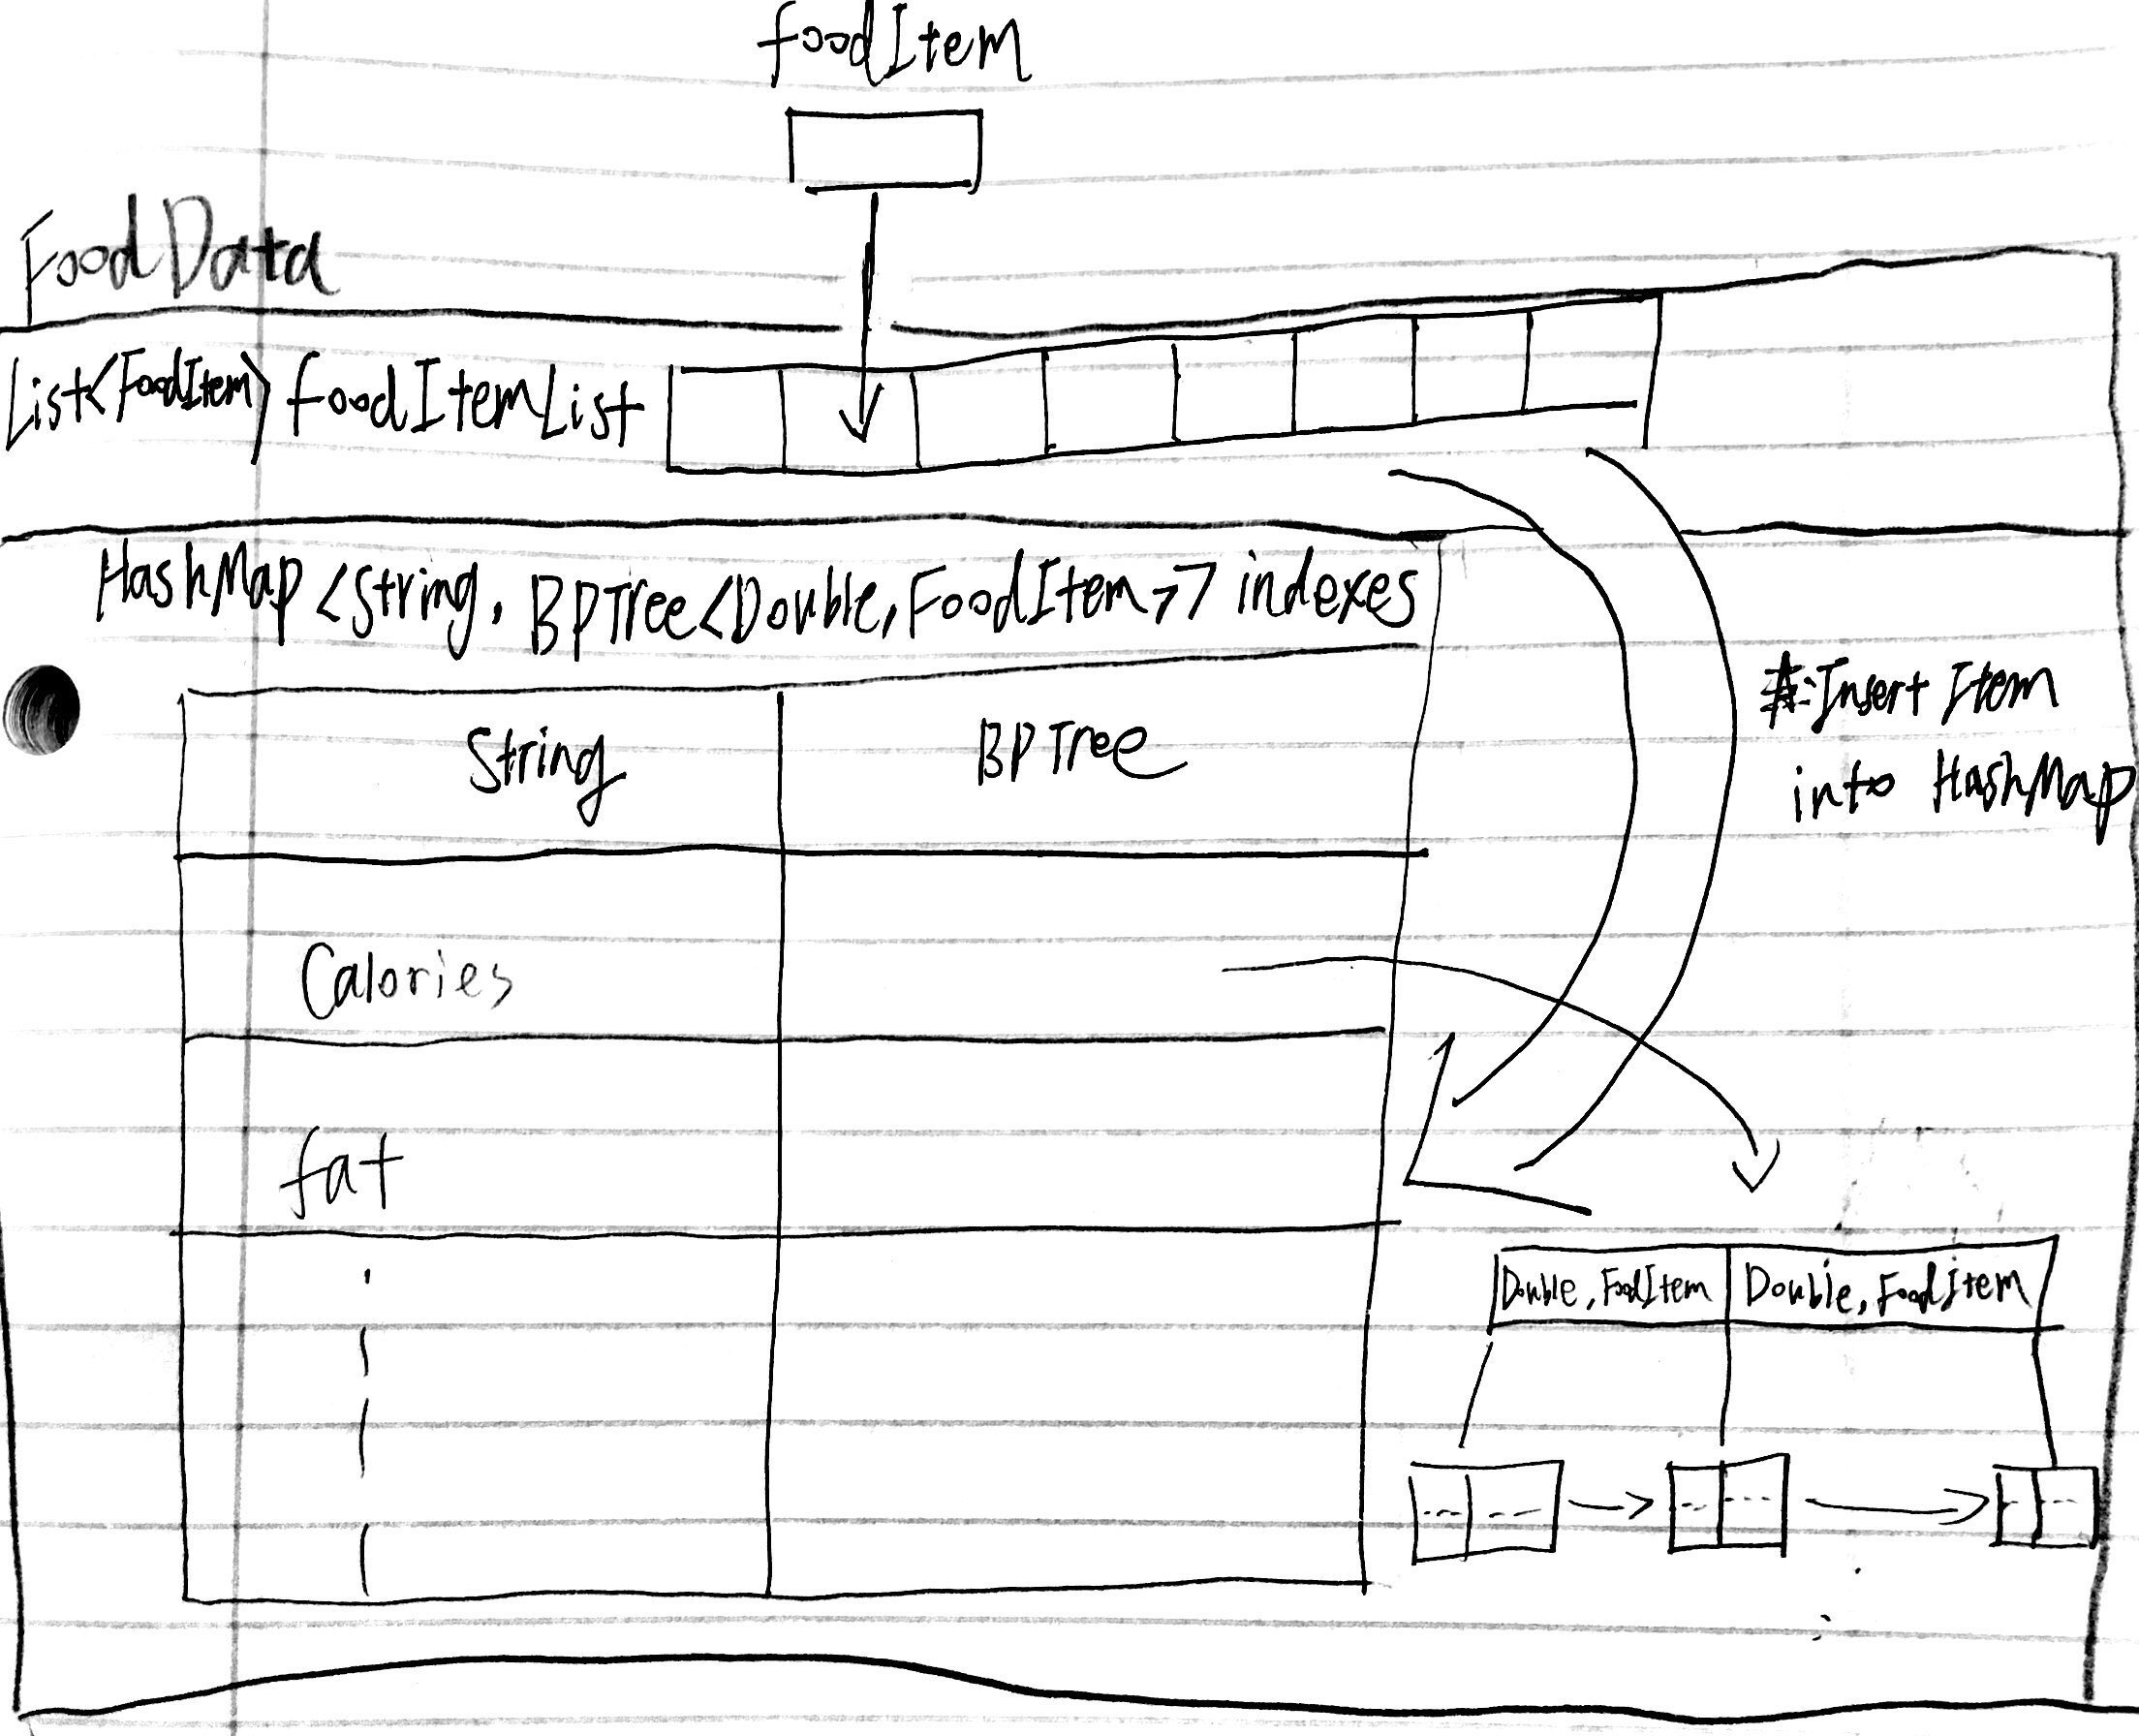 foodItem
FoodData
List<FoodItem> foodItemList
HashMap <String, BPTree<Double, FoodItem>> indexes
String BPTree
Insert Item
into HashMap
Calories
fat
Double, FoodItem Double, FoodItem